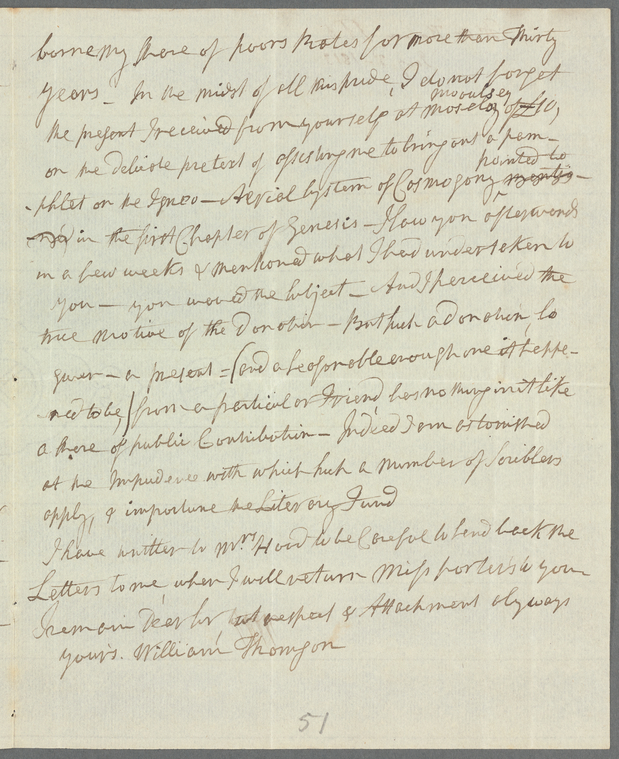 borne my share of poors Rates for more than Thirty
Years – In the midst of all this pride, I do not forget
moulsey
the present I received from yourself at Mosely of £10,
on the delicate pretext of assisting me to bring out a pam-
pointed to
phlet on the Igneo – Aerial System of Cosmogony
in the first Chapter of Genesis – I saw you afterwards
in a few weeks & mentioned what I had undertaken to
you – you waved the subject – And I perceived the
true motive of the donation – But such a donation, so
given – a present – (and a seasonable enough one it happe-
ned to be) from a particular Friend has nothing in it like
a share of public Contribution – Indeed I am astonished
at the Impudence with which such a number of Scriblers
apply, & importune the Literary Fund
I have written to Mrs. to be Careful to send back the
Letters to me, when I will return Miss porter's to you
I remain Dear Sir respect & Attachment always
yours. William Thomson
51